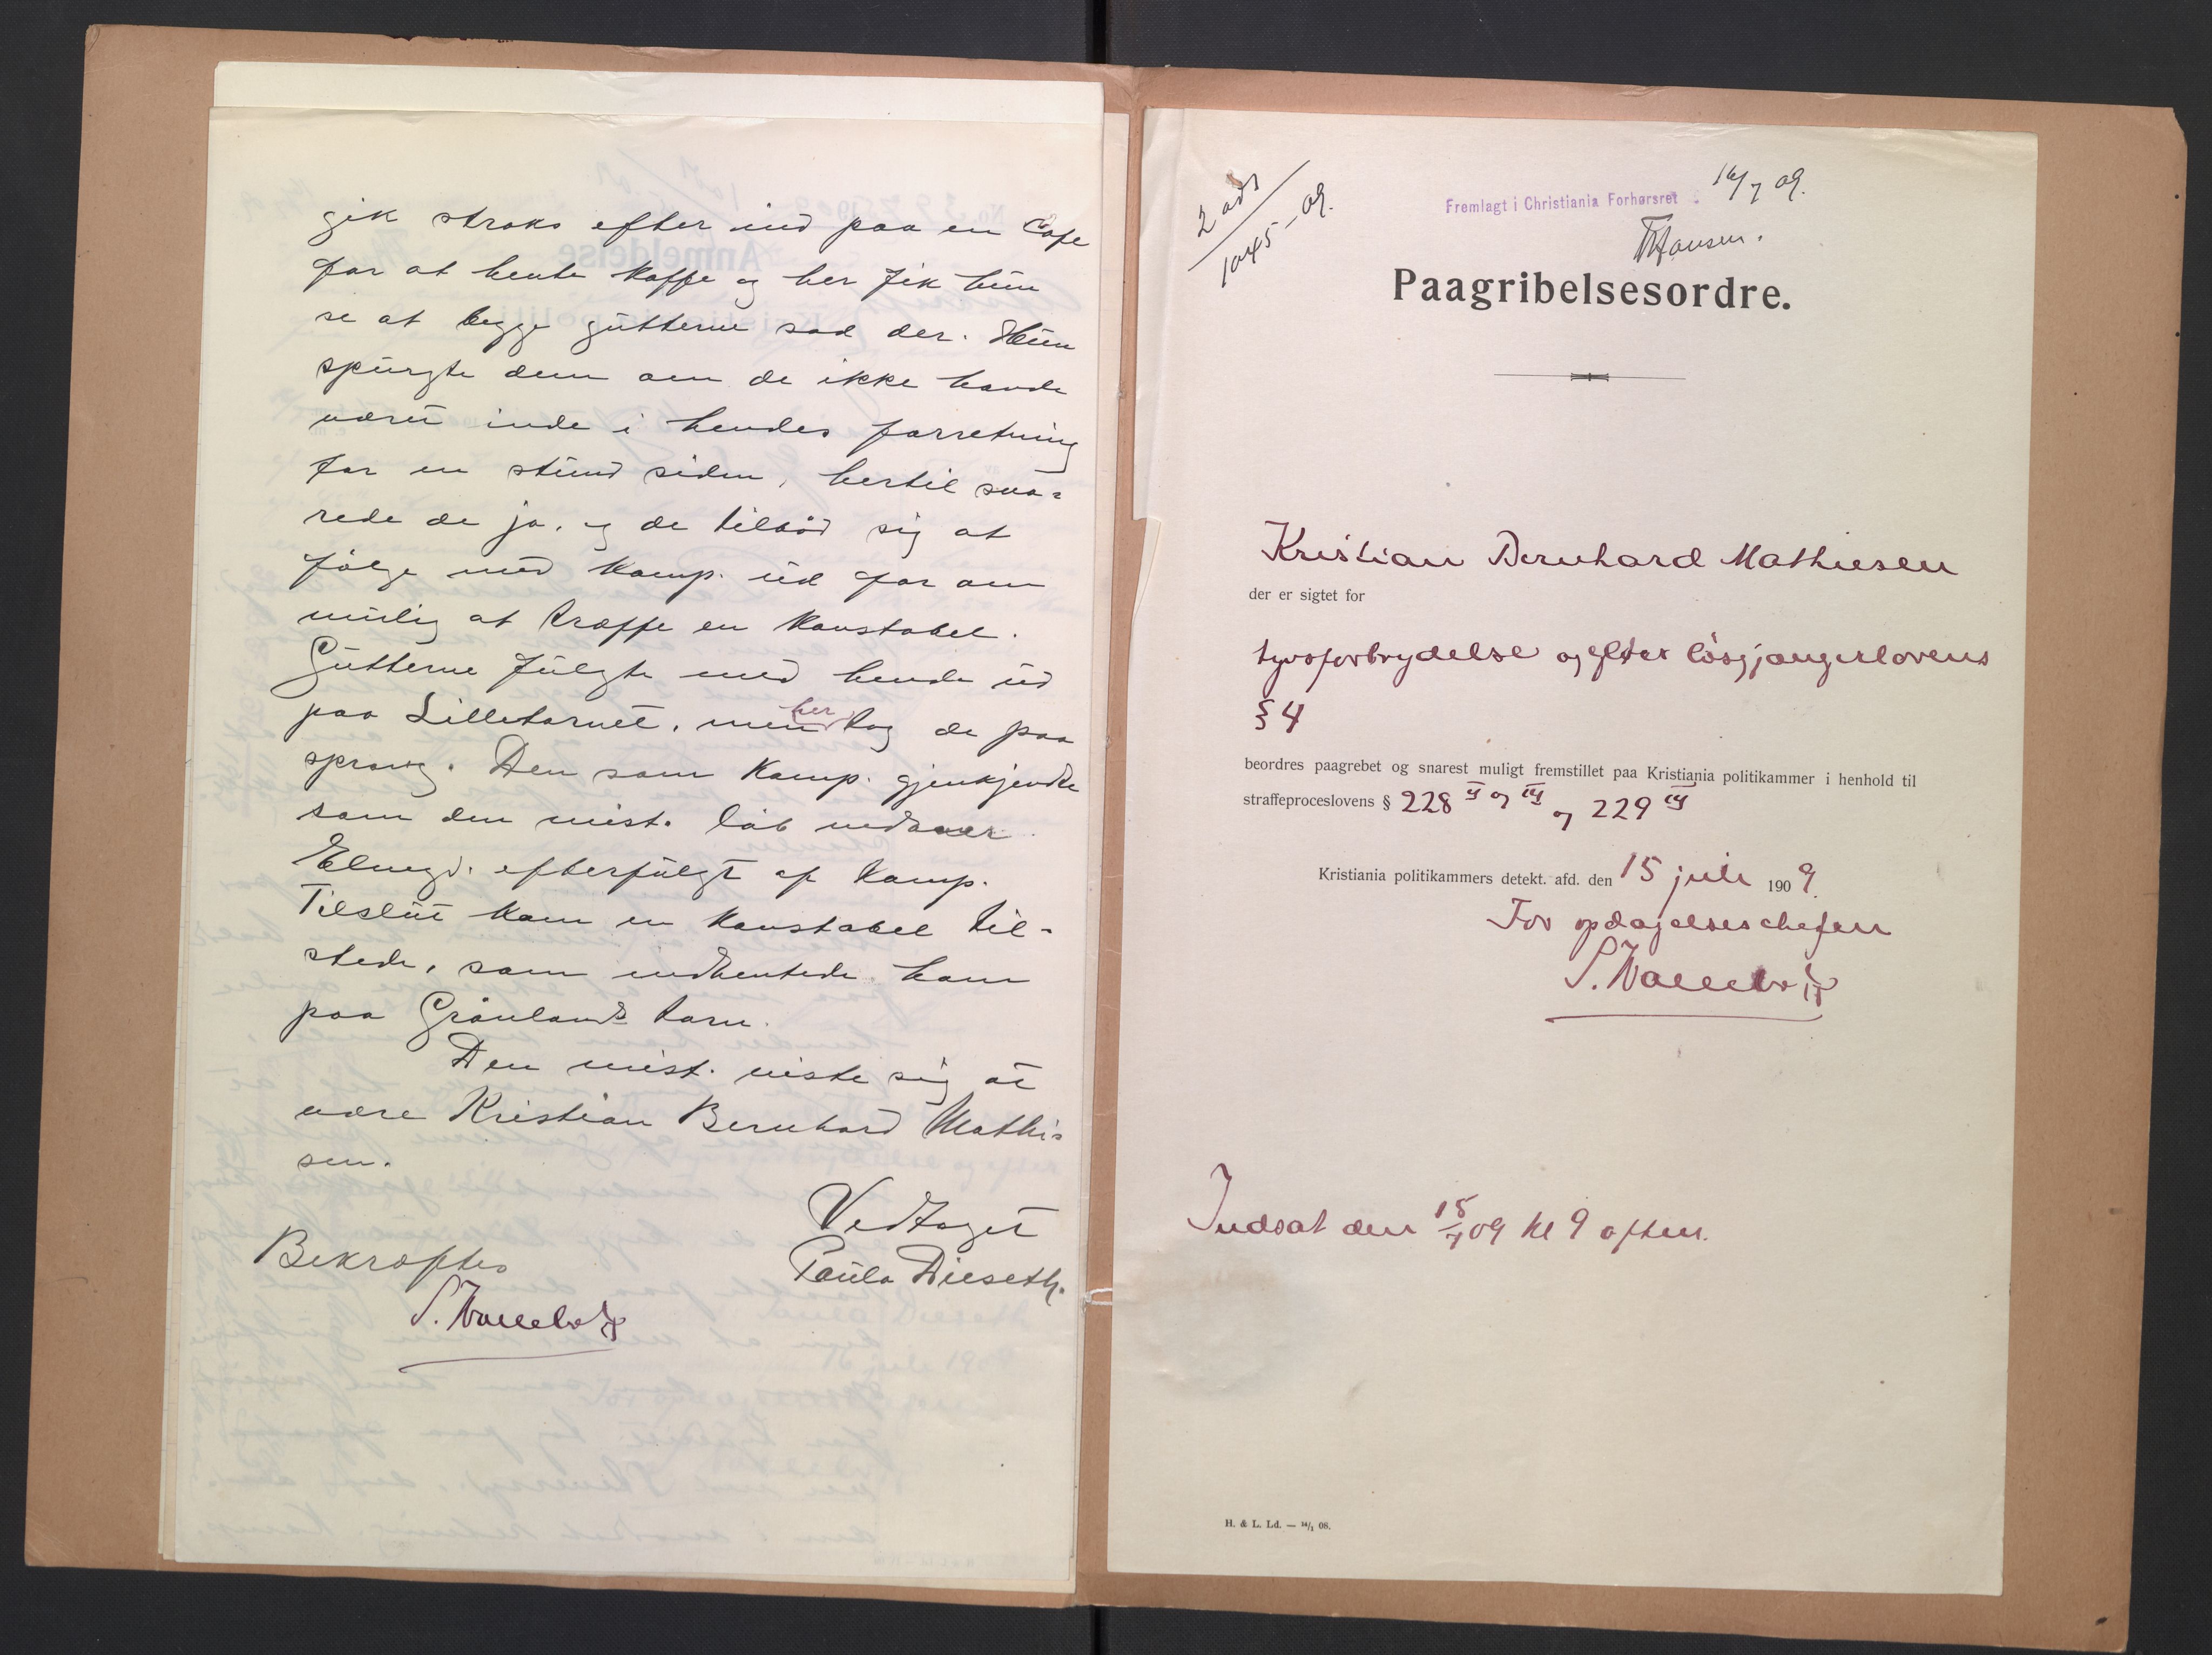 gik straks efter ind paa en Cafe
for at hente kaffe og her fik hun
se at begge gutterne sad der. Hun
spurgte dem om de ikke havde
været inde i hendes forretning
for en stund siden, hertil sva=
rede de ja, og de tilbød sig at
følge med komp. ud for om
mulig at træffe en konstabel.
Gutterne fulgte med hende ud
paa Lilletorvet, men her tog de paa
sprang. Den som komp. gjenkjendte
som den mist. løb nedover
Elvegd. efterfulgt af komp.
Tilslut kom en konstabel til-
stede, som indhentede ham
paa Grønlands torv.
Den mist. viste sig at
være Kristian Bernhard Mathi=
sen.
Vedtaget
Paula Dieseth.
Bekræftes
2 ad
1045-09.
Fremlagt i Christiania Forhørsret 16/7 09.
Hansen.
Paagribelsesordre.
Kristian Bernhard Mathiesen
der er sigtet for
tyvsforbrydelse og efter løsgjængerlovens
§ 4
beordres paagrebet og snarest muligt fremstillet paa Kristiania politikammer i henhold til
straffeproceslovens § 228 og og 229
Kristiania politikammers detekt. afd. den 15 juli 1909.
For opdagelseschefen
Indsat den 15/7 09 kl 9 aften.
H. & L. Ld. — 14/1 08.